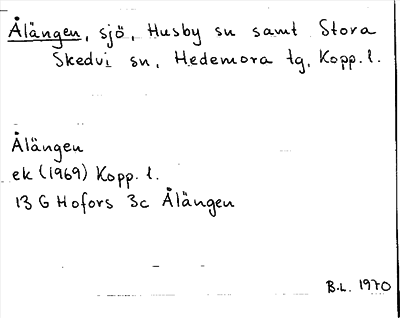 Ålängen, sjö, Husby sn samt Stora
Skedvi sn, Hedemora tg, Kopp. l.
Ålängen
ek (1969) Kopp. l.
13 G Hofors 3c Ålängen
B.L. 1970